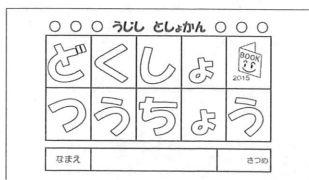 ○ ○ ○ うじし としょかん ○ ○ ○
どくしょ
BOOK
2015
つうちょう
なまえ
さつめ